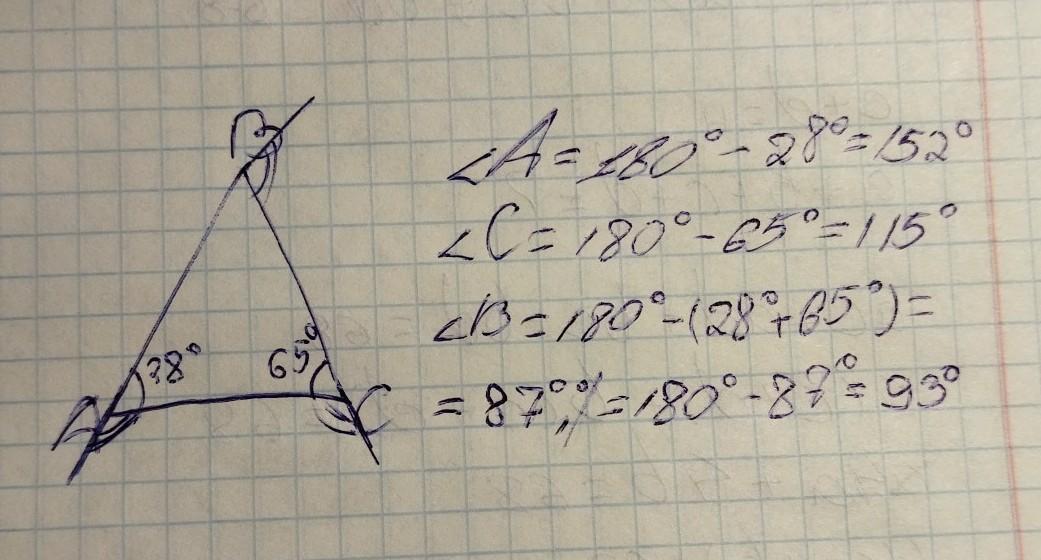 B
38° 65°
A C
∠A = 180° - 28° = 152°
∠C = 180° - 65° = 115°
∠B = 180° - (28° + 65°) =
= 87°; = 180° - 87° = 93°